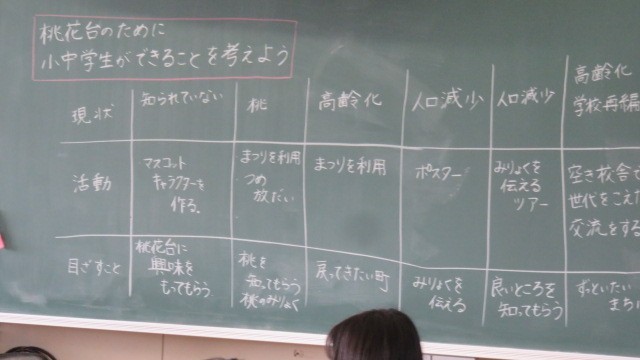 桃花台のために
小中学生ができることを考えよう
現状
知られていない
桃
高齢化
人口減少
人口減少
高齢化
学校再編
活動
マスコット
キャラクターを
作る。
まつりを利用
つめ
放だい
まつりを利用
ポスター
みりょくを
伝える
ツアー
空き校舎で
世代をこえた
交流をする
目ざすこと
桃花台に
興味を
もってもらう
桃を
知ってもらう
桃のみりょく
戻ってきたい町
みりょくを
伝える
良いところを
知ってもらう
ずっといたい
まち